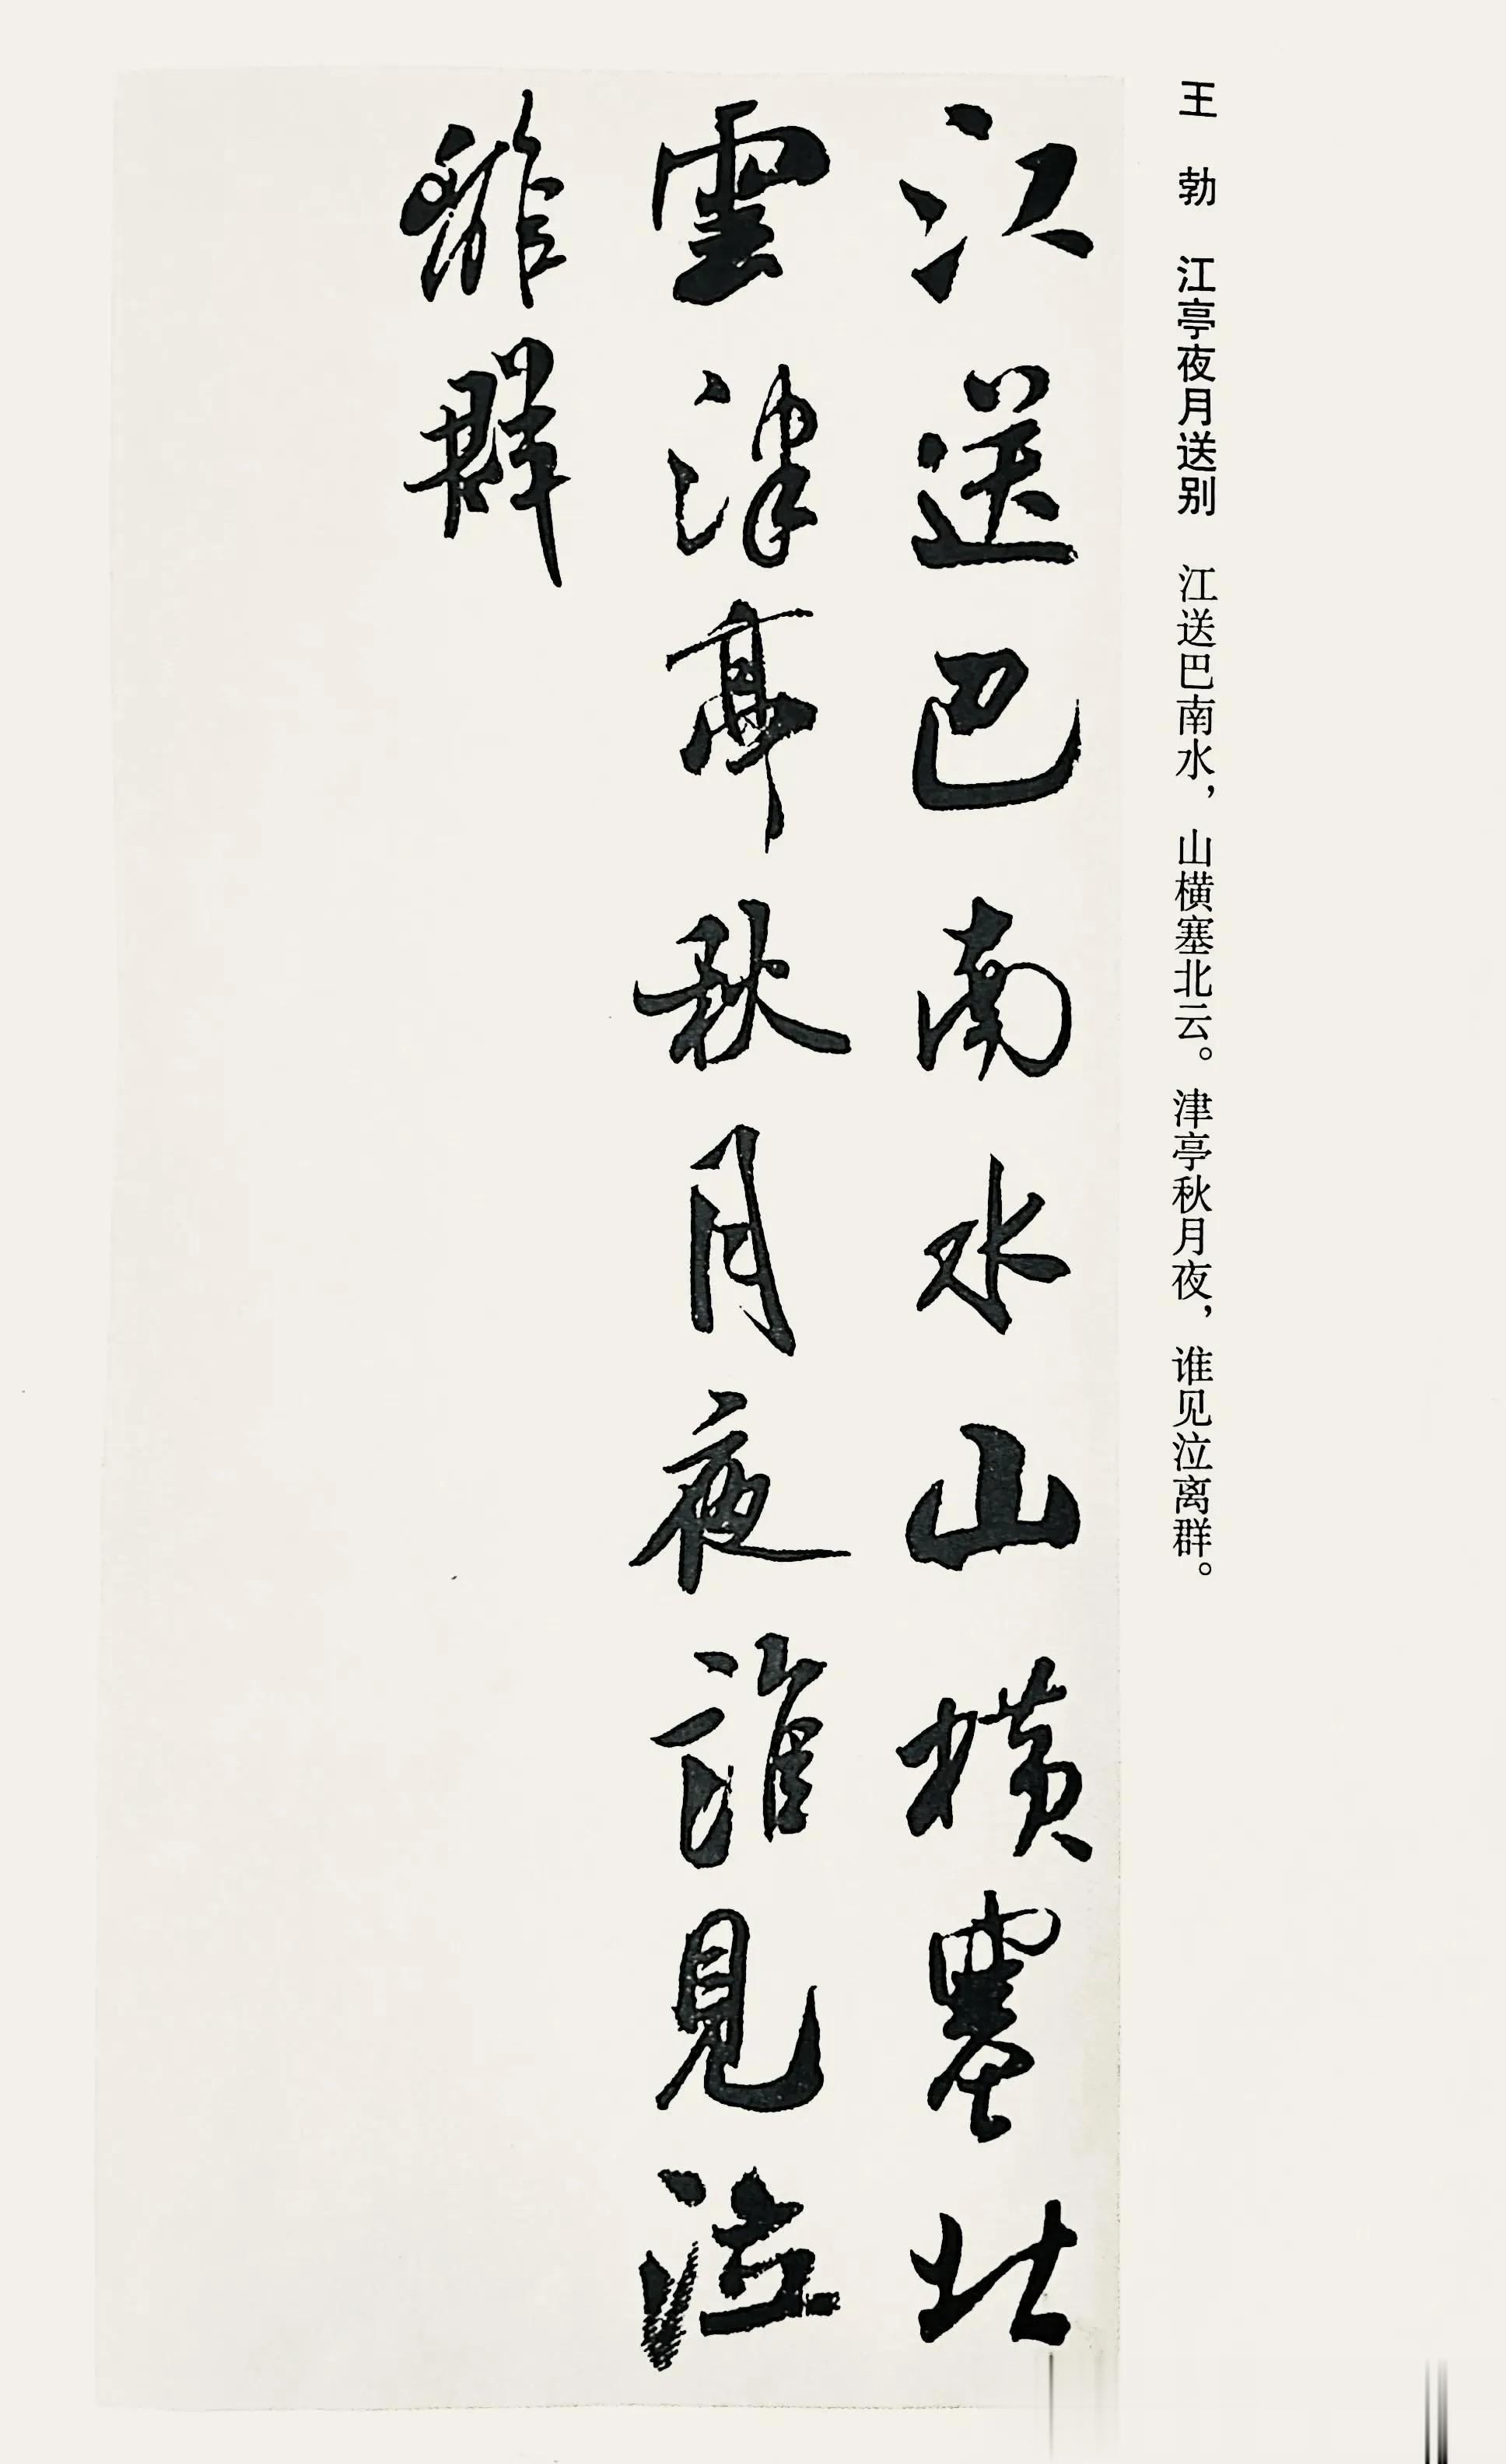 王 勃 江亭夜月送别 江送巴南水，山横塞北云。津亭秋月夜，谁见泣离群。
江送巴南水山横塞北
雲津亭秋月夜誰見泣
離群